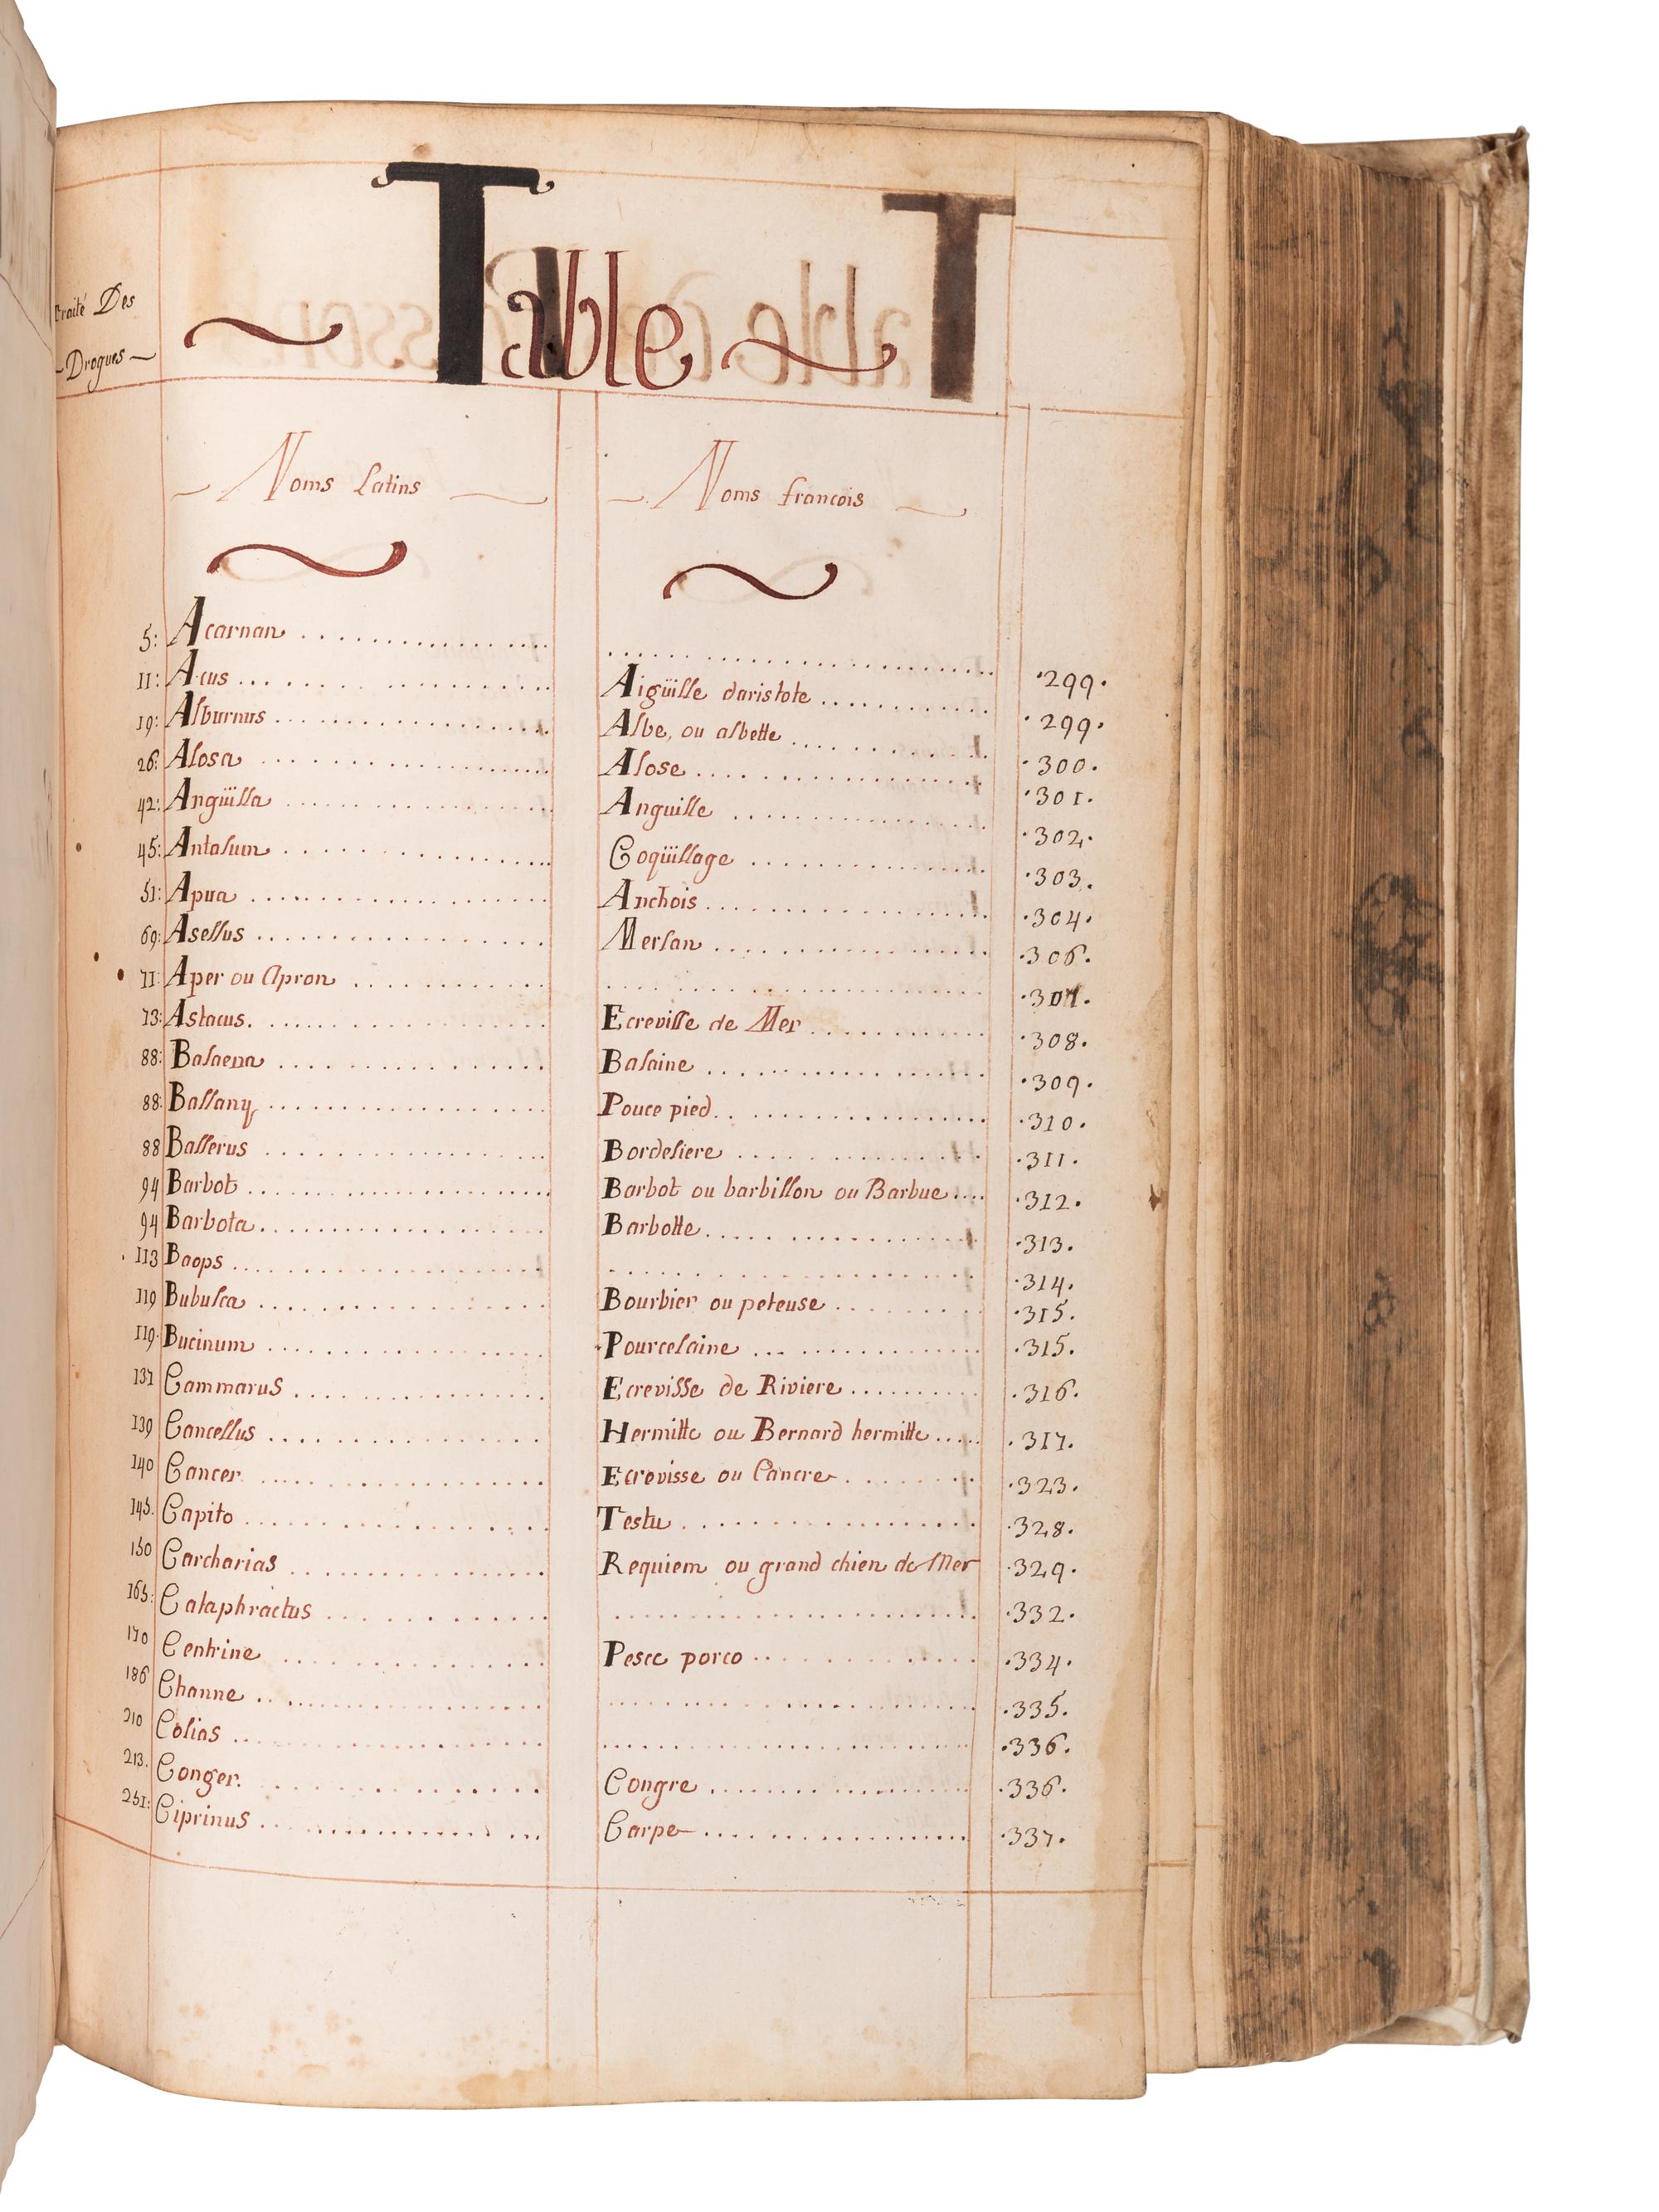 Traité Des
Drogues
Table
Noms Latins Noms francois
5: Acarnan .299.
11: Acus Aigüille daristote .299.
19: Alburnus Albe, ou albette .300.
26: Alosa Alose .301.
42: Angüilla Anguille .302.
45: Antalium Coqüillage .303.
51: Apua Anchois .304.
69: Asellus Merlan .306.
71: Aper ou Apron .307.
73: Astacus. Ecrevisse de Mer .308.
88: Balaena Balaine .309.
88: Pouce pied .310.
88 Ballerus Bordeliere .311.
94 Barbot Barbot ou barbillon ou Barbue .312.
94 Barbota Barbotte .313.
113 Boops .314.
119 Bubulca Bourbier ou peteuse .315.
119. Bucinum Pourcelaine .315.
137 Cammarus Ecrevisse de Riviere .316.
139 Cancellus Hermitte ou Bernard hermitte .317.
140 Cancer Ecrevisse ou Cancre .323.
145. Capito Testu .328.
150 Carcharias Requiem ou grand chien de Mer .329.
165: Cataphractus .332.
170 Centrine Pesce porco .334.
186 Channe .335.
210 Colias .336.
213. Conger. Congre .336.
251: Ciprinus Carpe .337.